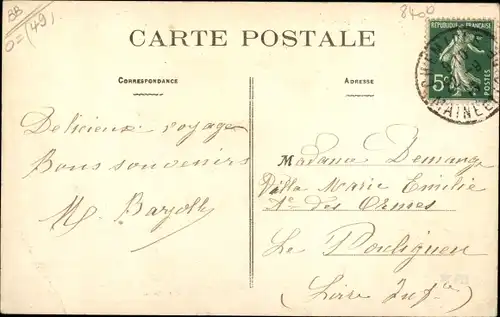 BB
0=(49)
8400
CARTE POSTALE
RÉPUBLIQUE FRANÇAISE
5c
POSTES
MAINE
CORRESPONDANCE
ADRESSE
Delicieux voyage
Bons souvenirs
M. Bazolle
Madame Demange
Villa Marie Emilie
Av. des Ormes
Le Pouliguen
(Loire Infre)